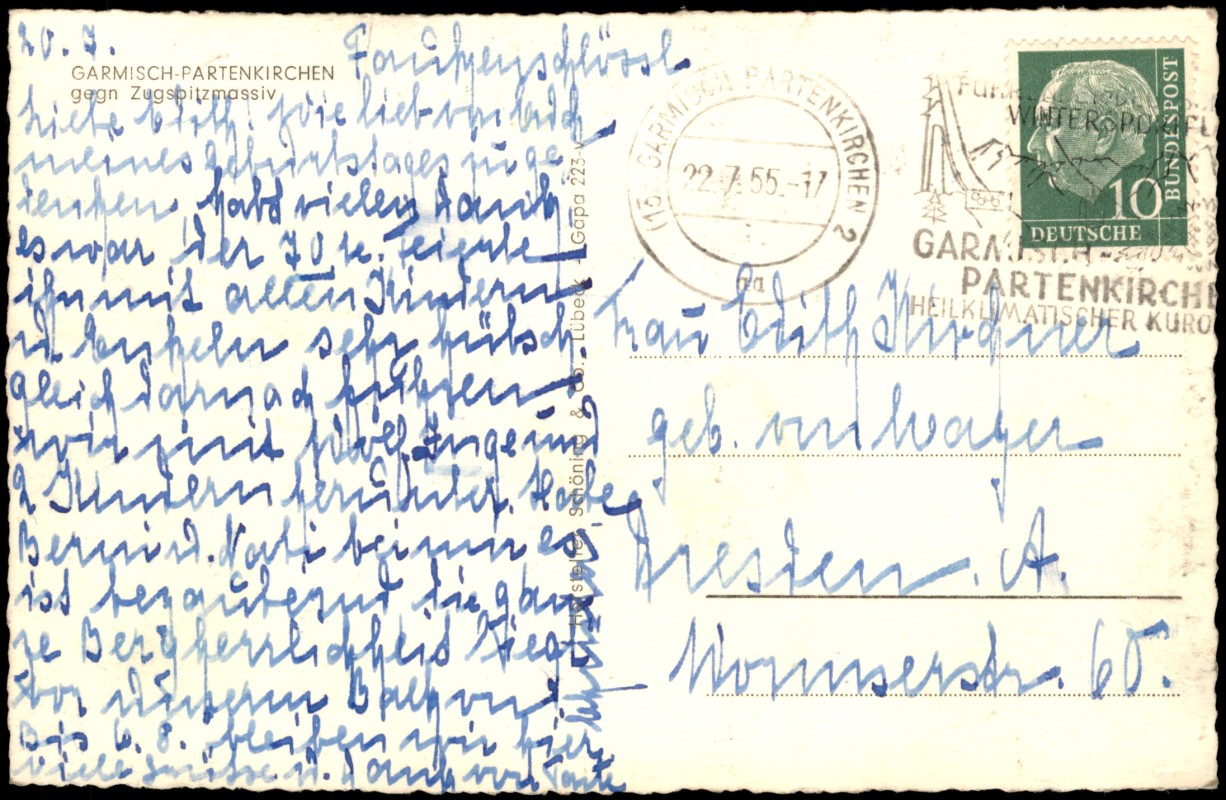 20. 7.
Faukenschlössl
GARMISCH-PARTENKIRCHEN
gegn Zugspitzmassiv
Liebe Edith. Wie lieb von Euch
meines Geburtstages zu ge
denken, habt vielen Dank
es war der 70te. Feierte
ihn mit allen Kindern
u Enkeln sehr hübsch.
gleich darnach fuhren
wir mit Inge und
2 Kindern herunter. Habe
Bernd. bei mir es
ist bezaubernd die gan
ze Bergherrlichkeit liegt
vor unserm Balkon
Bis 6. 8. bleiben wir hier
viele Grüsse u. Dank von Tante
Hersteller, Schöning & Co., Lübeck Gapa 223-v
(13b) GARMISCH PARTENKIRCHEN 2
22.7.55.-17
WINTERSPORT
GARMISCH-
PARTENKIRCHE
HEILKLIMATISCHER KURO
DEUTSCHE
BUNDESPOST
10
Frau Edith Kirchner
geb. von Mayer
Dresden. A.
Wormserstr. 60.